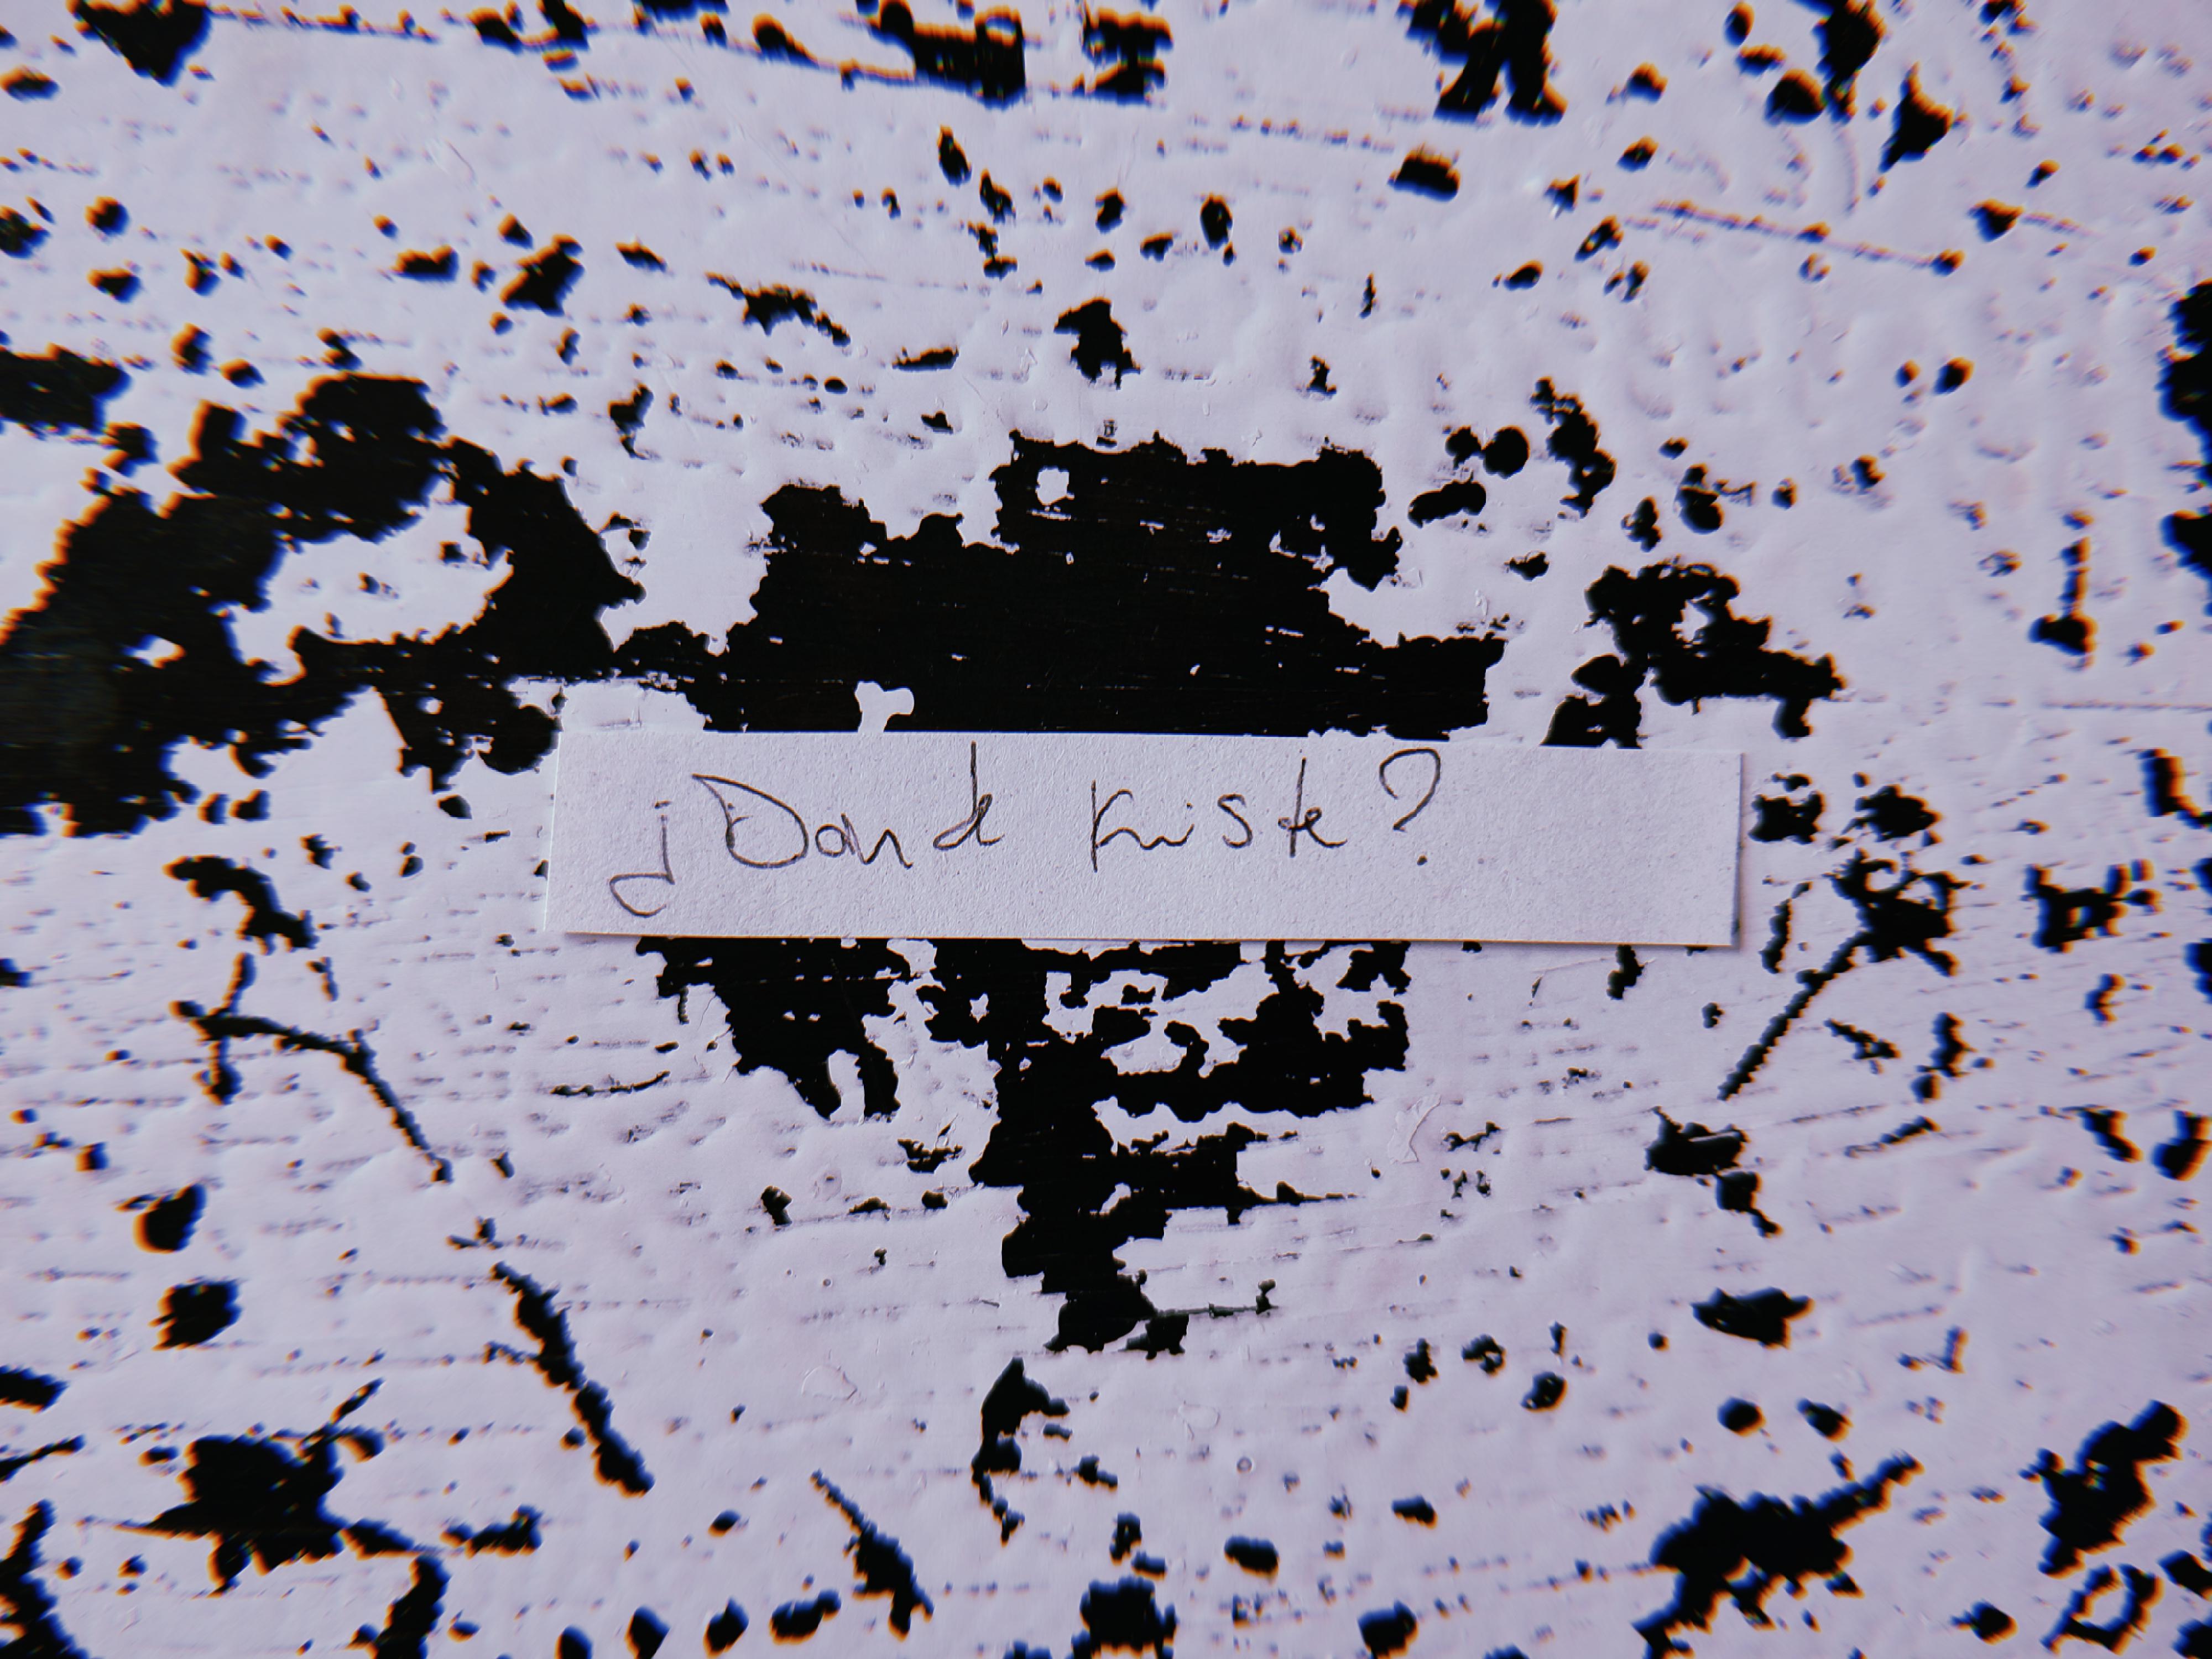 ¿Donde fuiste?